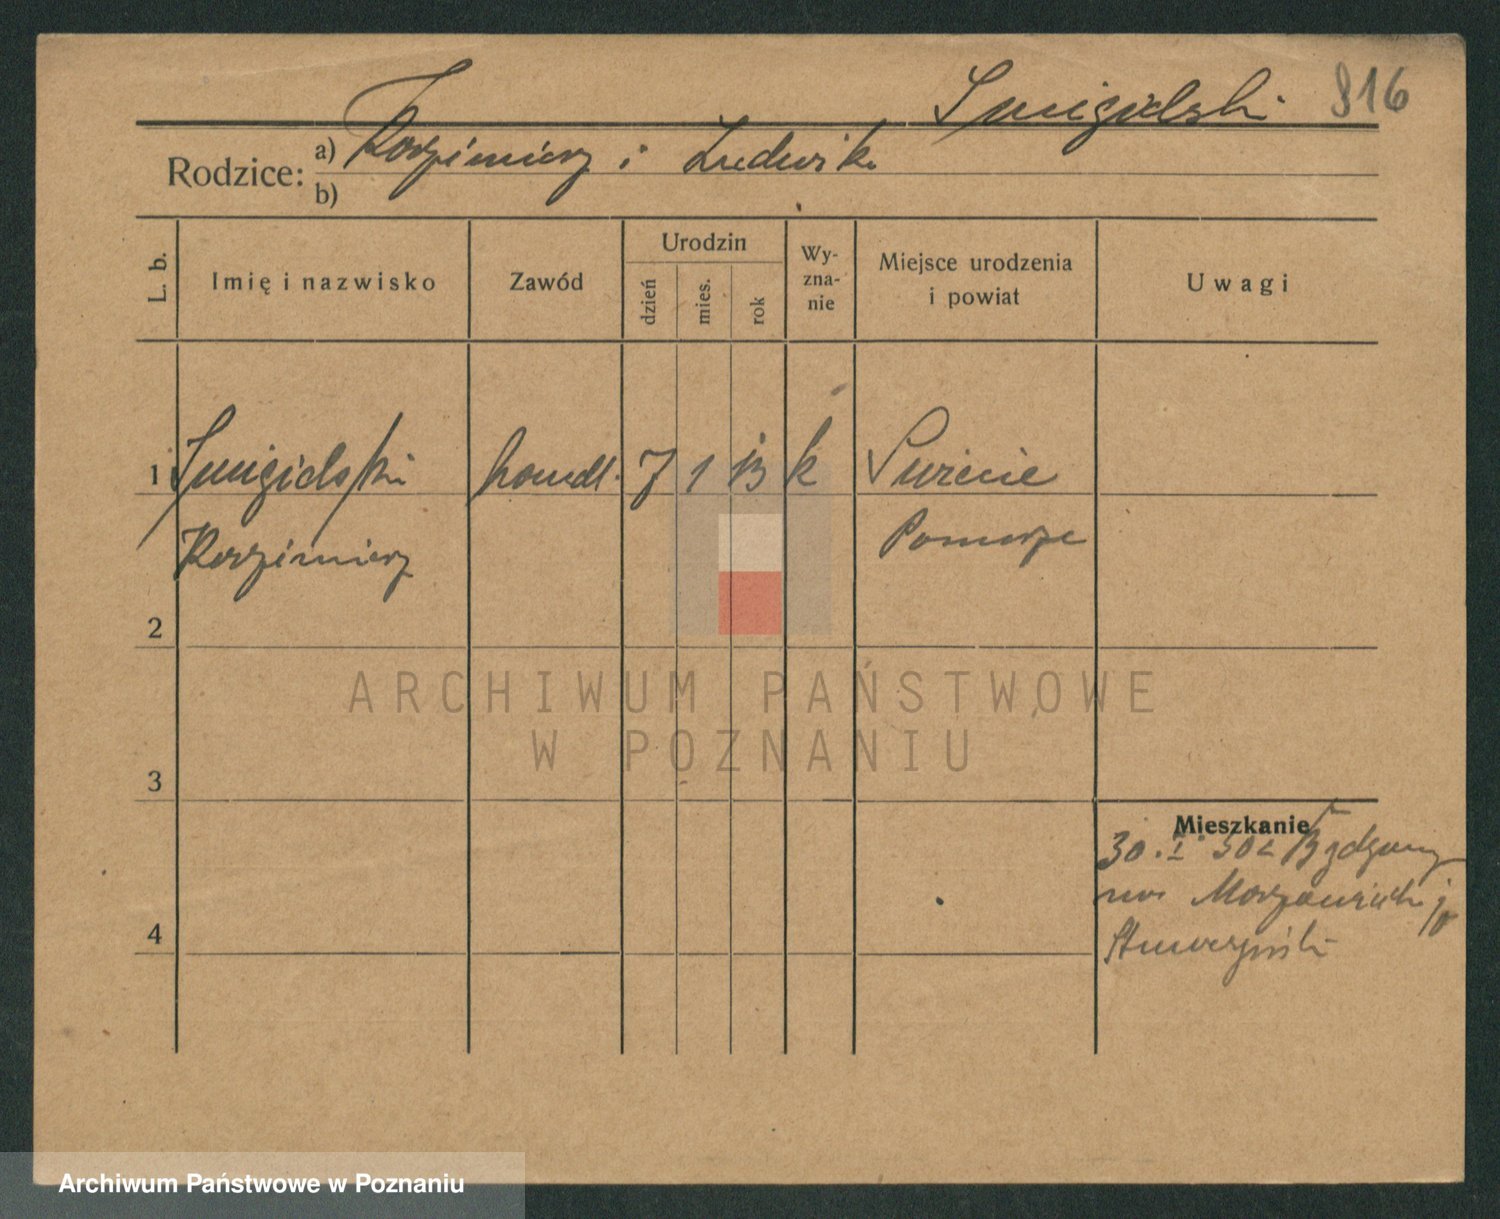 Śmigielski 816
Rodzice: a) Kazimierz i Ludwika
b)
L. b. Imię i nazwisko Zawód Urodzin dzień mies. rok Wy-zna-nie Miejsce urodzenia i powiat Uwagi
1 Śmigielski handl. 7 1 13 k
Kazimierz Pomorze
2
ARCHIWUM PAŃSTWOWE
W POZNANIU
3
Mieszkanie
30. I. 30 z Bydgoszczy
4
Archiwum Państwowe w Poznaniu